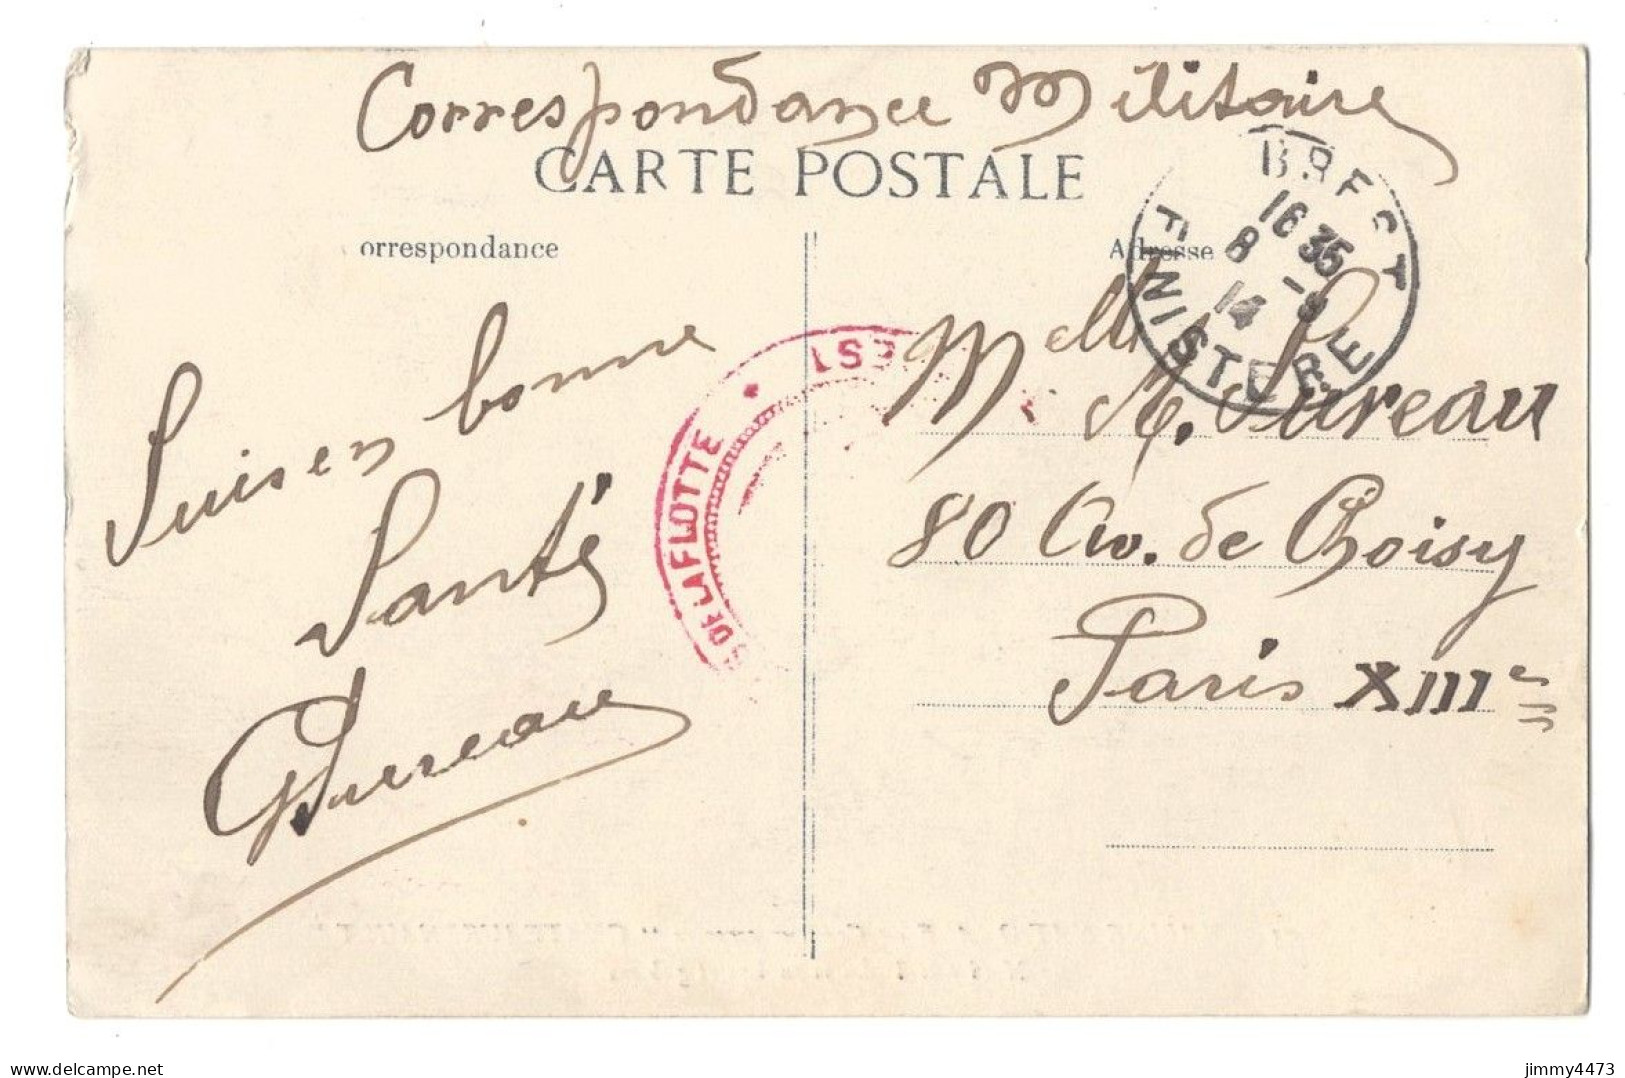 Correspondance Militaire
CARTE POSTALE
orrespondance
Adresse
BREST
16 35
8 - 9
14
FINISTERE
Suis en bonne
Santé
GPureau
* DE LA FLOTTE
Melle M. Pureau
80 Av. de Choisy
Paris XIIIe
www.delcampe.net
jimmy4473